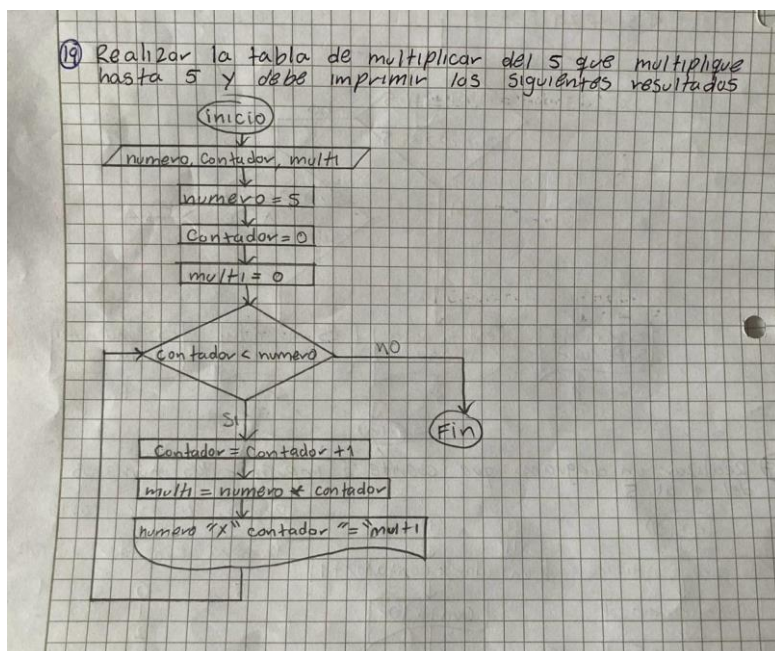 19 Realizar la tabla de multiplicar del 5 que multiplique
hasta 5 y debe imprimir los siguientes resultados
inicio
numero, contador, multi
numero = 5
Contador = 0
multi = 0
contador < numero
no
Si
Fin
Contador = contador +1
multi = numero * contador
numero "x" contador "=" multi